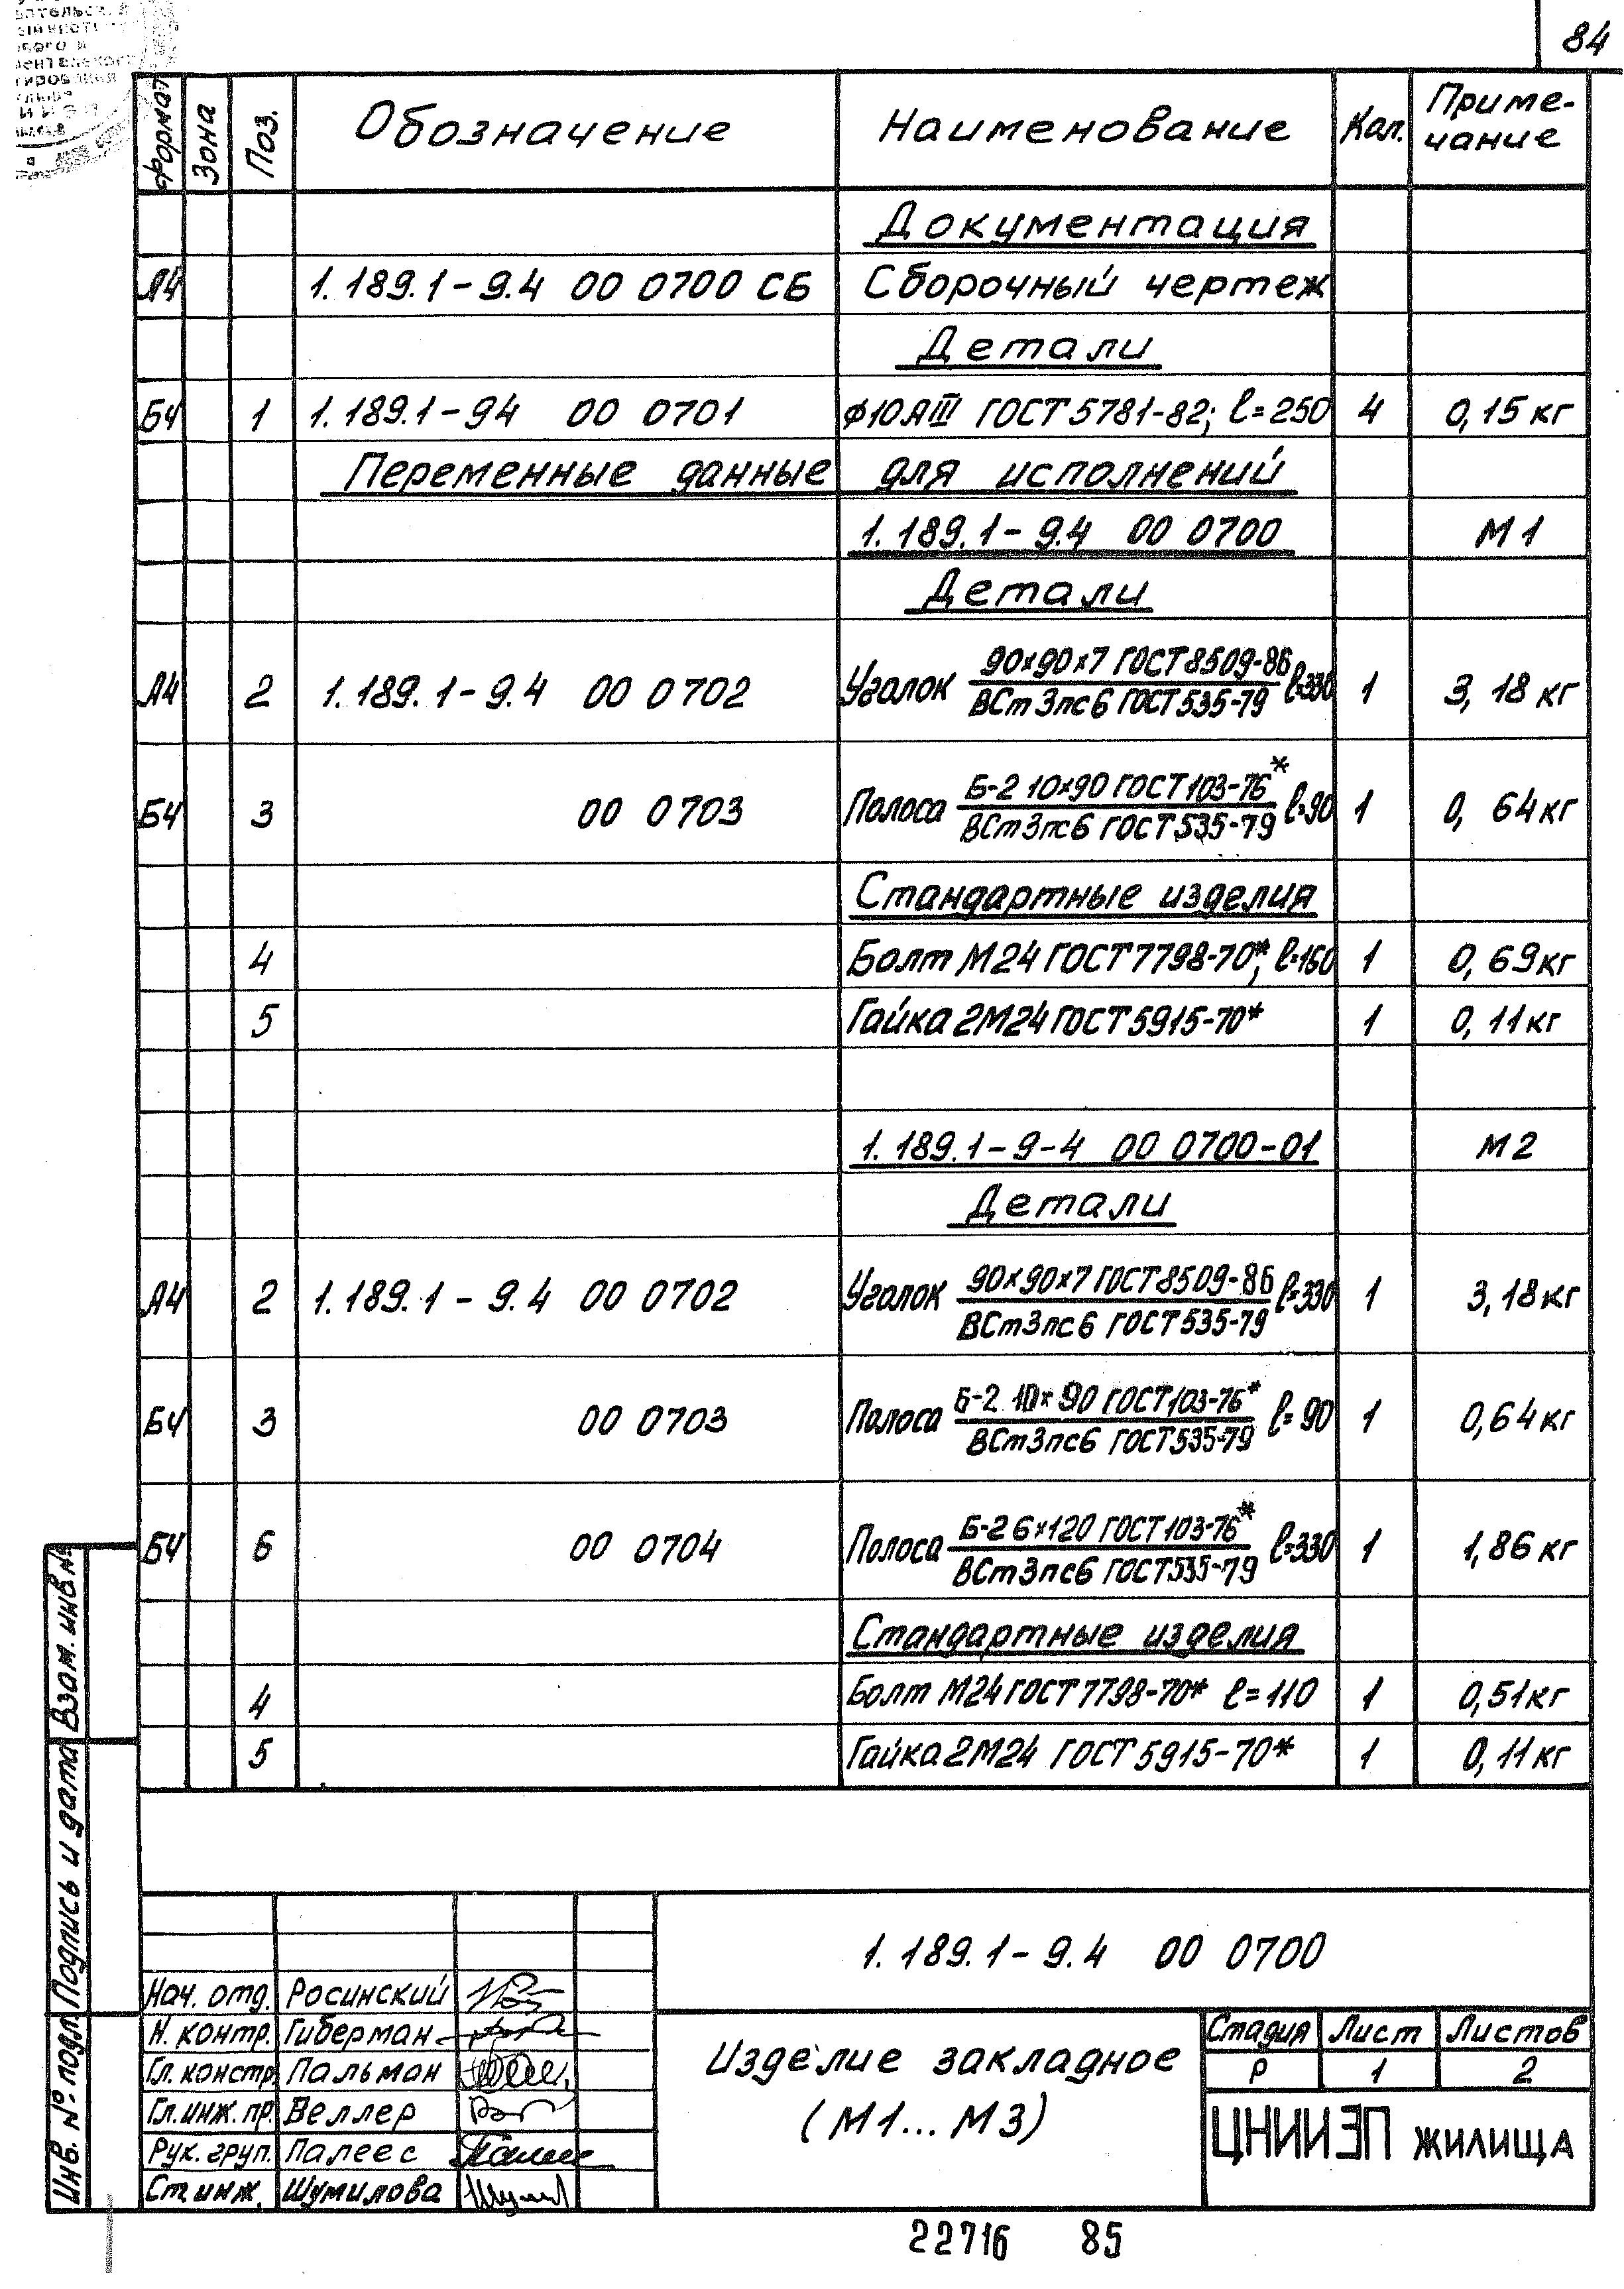 84
Формат Зона Поз. Обозначение Наименование Кол. Приме-
чание
Документация
А4 1.189.1-9.4 00 0700 СБ Сборочный чертеж
Детали
БЧ 1 1.189.1-94 00 0701 ф10АIII ГОСТ 5781-82; ℓ=250 4 0,15 кг
Переменные данные для исполнений
1.189.1-9.4 00 0700 М1
Детали
А4 2 1.189.1-9.4 00 0702 Уголок 90х90х7 ГОСТ 8509-86 ℓ=330 1 3,18 кг
ВСт3пс6 ГОСТ 535-79
БЧ 3 00 0703 Полоса Б-2 10х90 ГОСТ 103-76* ℓ=90 1 0,64кг
ВСт3пс6 ГОСТ 535-79
Стандартные изделия
4 Болт М24 ГОСТ 7798-70*, ℓ=160 1 0,69кг
5 Гайка 2М24 ГОСТ 5915-70* 1 0,11кг
1.189.1-9-4 00 0700-01 М2
Детали
А4 2 1.189.1-9.4 00 0702 Уголок 90х90х7 ГОСТ 8509-86 ℓ=330 1 3,18кг
ВСт3пс6 ГОСТ 535-79
БЧ 3 00 0703 Полоса Б-2 10х90 ГОСТ 103-76* ℓ=90 1 0,64кг
ВСт3пс6 ГОСТ 535-79
БЧ 6 00 0704 Полоса Б-2 6х120 ГОСТ 103-76* ℓ=330 1 1,86 кг
ВСт3пс6 ГОСТ 535-79
Стандартные изделия
4 Болт М24 ГОСТ 7798-70* ℓ=110 1 0,51кг
5 Гайка 2М24 ГОСТ 5915-70* 1 0,11кг
Инв. № подл. Подпись и дата Взам. инв. №
1.189.1-9.4 00 0700
Нач. отд. Росинский
Н. контр. Гиберман
Гл. констр. Пальман
Гл. инж. пр. Веллер
Рук. груп. Палеес
Ст. инж. Шумилова
Изделие закладное
(М1...М3)
Стадия Лист Листов
Р 1 2
ЦНИИЭП жилища
22716 85